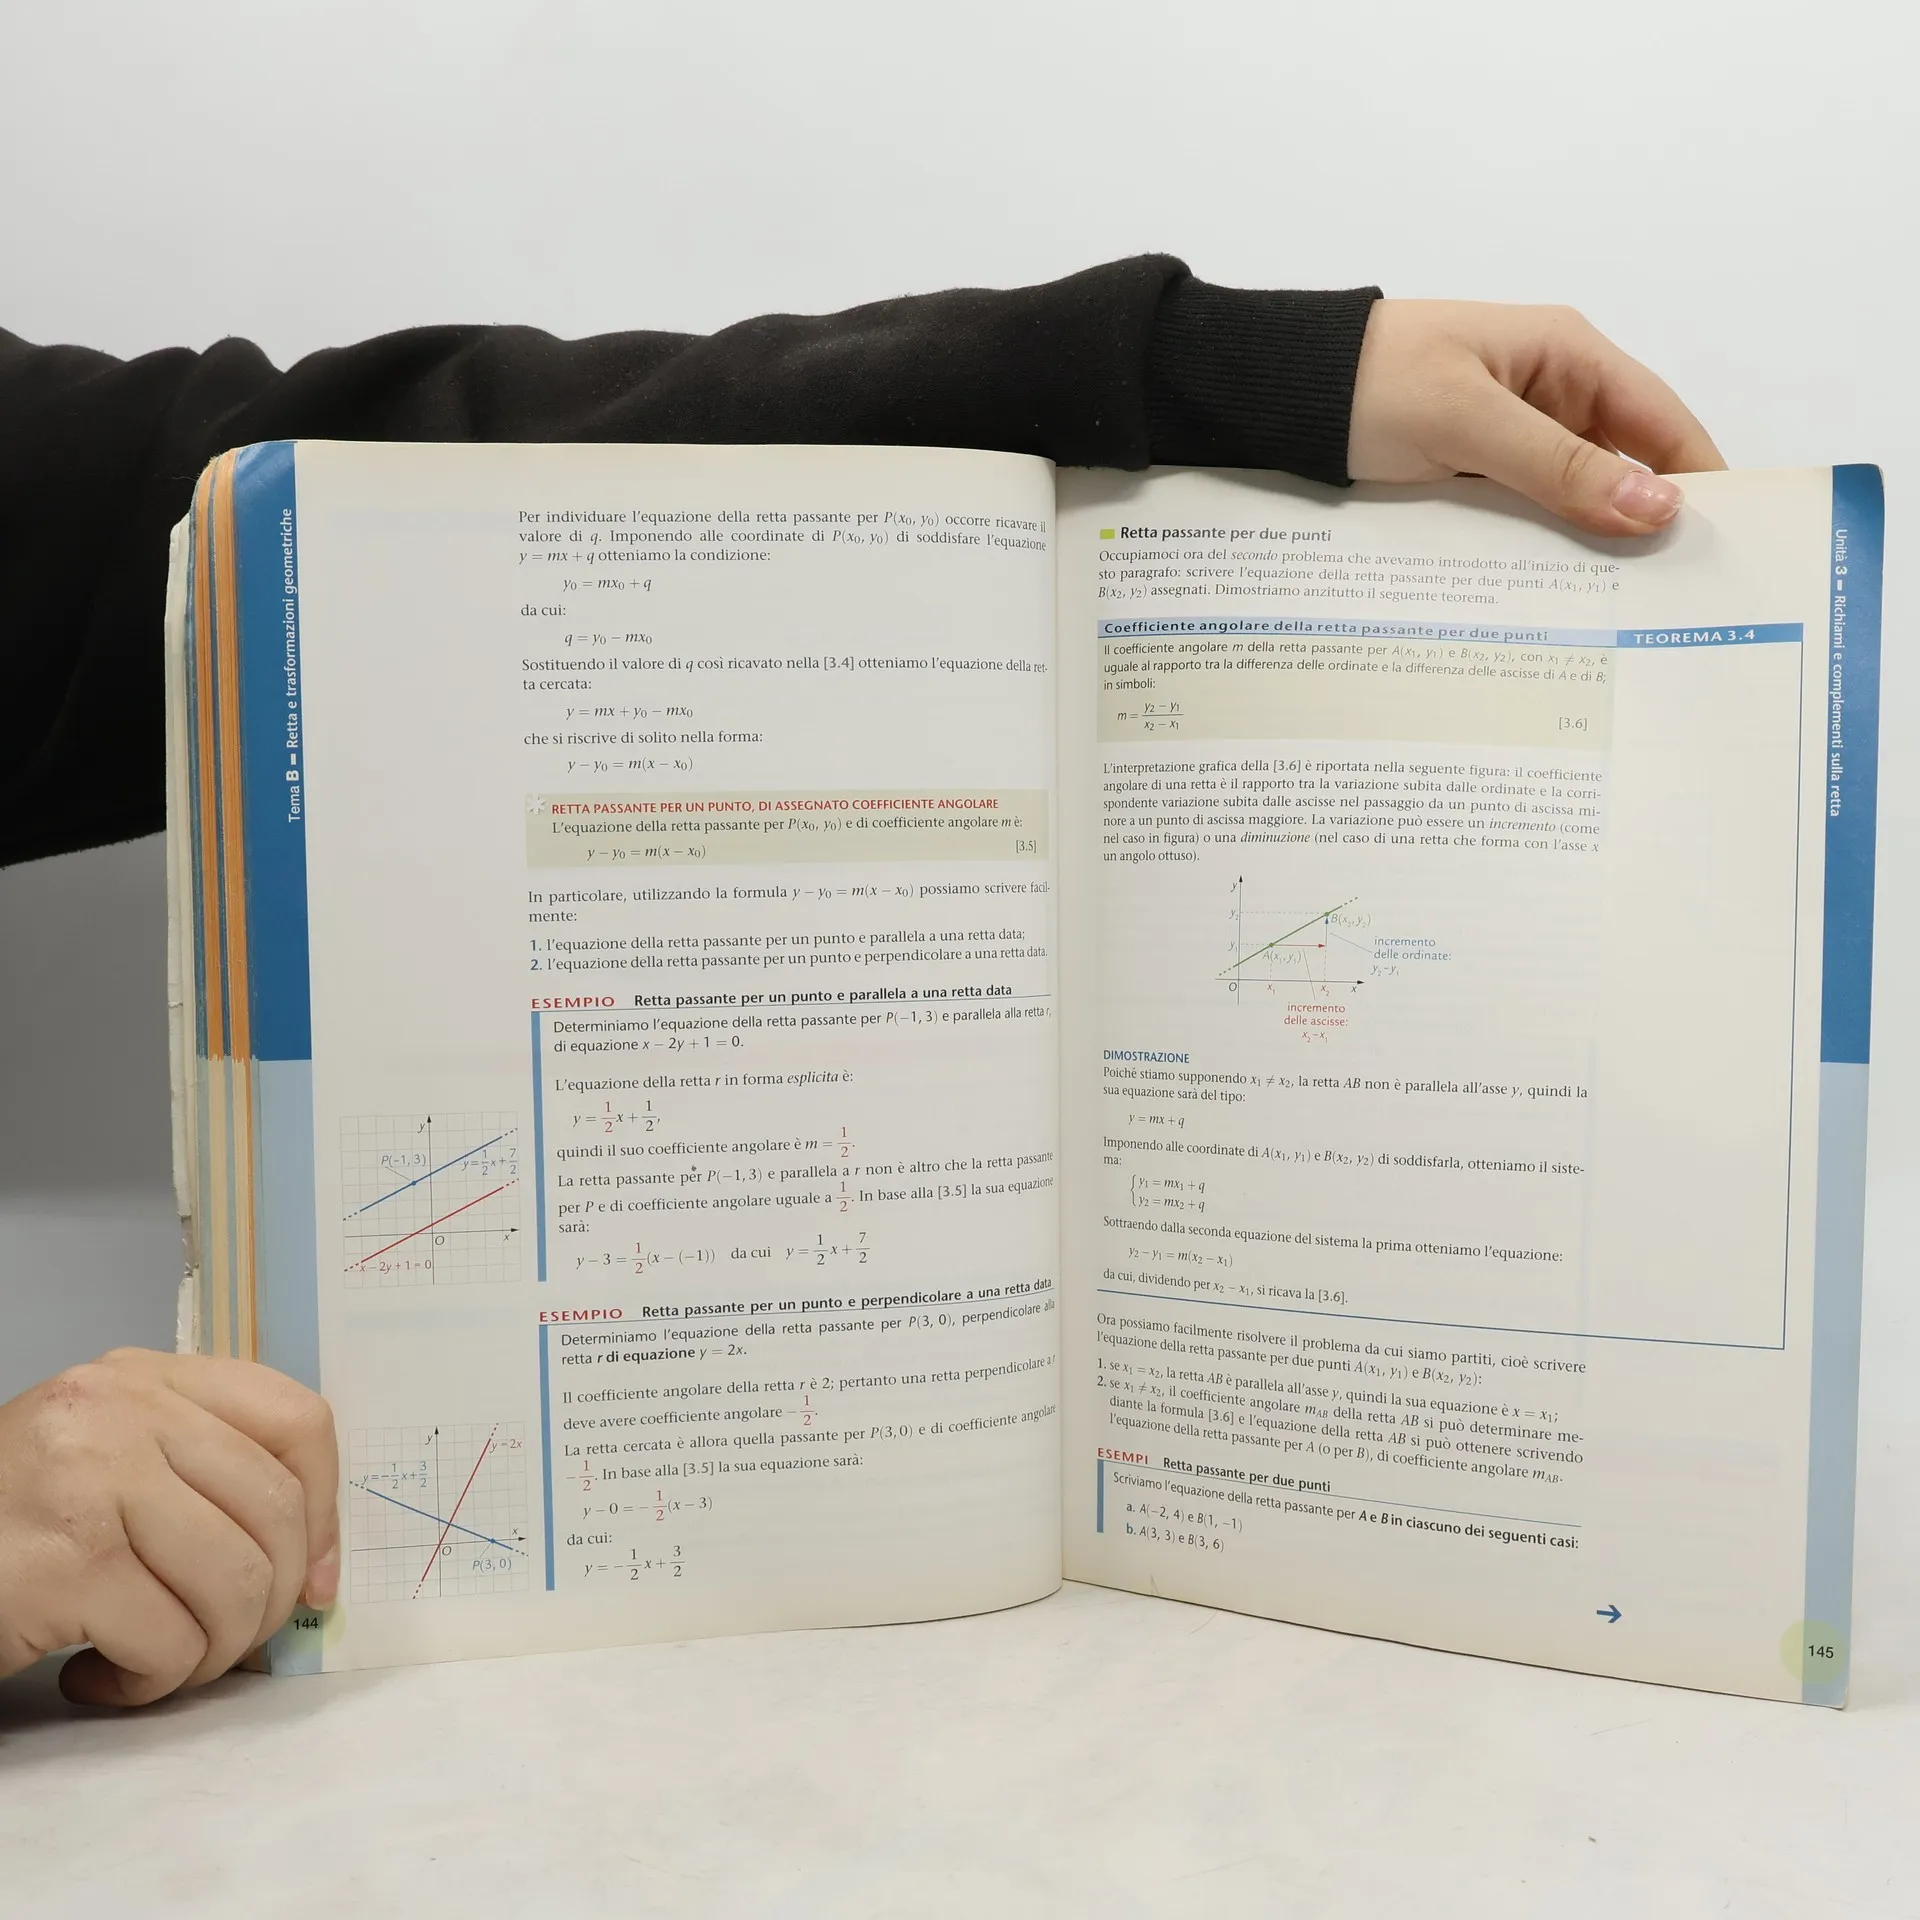 Tema B Retta e trasformazioni geometriche
Per individuare l'equazione della retta passante per P(x₀, y₀) occorre ricavare il
valore di q. Imponendo alle coordinate di P(x₀, y₀) di soddisfare l'equazione
y = mx + q otteniamo la condizione:
y₀ = mx₀ + q
da cui:
q = y₀ − mx₀
Sostituendo il valore di q così ricavato nella [3.4] otteniamo l'equazione della ret-
ta cercata:
y = mx + y₀ − mx₀
che si riscrive di solito nella forma:
y − y₀ = m(x − x₀)
RETTA PASSANTE PER UN PUNTO, DI ASSEGNATO COEFFICIENTE ANGOLARE
L'equazione della retta passante per P(x₀, y₀) e di coefficiente angolare m è:
y − y₀ = m(x − x₀) [3.5]
In particolare, utilizzando la formula y − y₀ = m(x − x₀) possiamo scrivere facil-
mente:
1. l'equazione della retta passante per un punto e parallela a una retta data;
2. l'equazione della retta passante per un punto e perpendicolare a una retta data.
ESEMPIO Retta passante per un punto e parallela a una retta data
Determiniamo l'equazione della retta passante per P(−1, 3) e parallela alla retta r,
di equazione x − 2y + 1 = 0.
L'equazione della retta r in forma esplicita è:
y = 1/2 x + 1/2,
quindi il suo coefficiente angolare è m = 1/2.
La retta passante per P(−1, 3) e parallela a r non è altro che la retta passante
per P e di coefficiente angolare uguale a 1/2. In base alla [3.5] la sua equazione
sarà:
y − 3 = 1/2 (x − (−1)) da cui y = 1/2 x + 7/2
y
P(−1, 3)
y = 1/2 x + 7/2
O
x
x − 2y + 1 = 0
ESEMPIO Retta passante per un punto e perpendicolare a una retta data
Determiniamo l'equazione della retta passante per P(3, 0), perpendicolare alla
retta r di equazione y = 2x.
Il coefficiente angolare della retta r è 2; pertanto una retta perpendicolare a r
deve avere coefficiente angolare − 1/2.
La retta cercata è allora quella passante per P(3, 0) e di coefficiente angolare
− 1/2. In base alla [3.5] la sua equazione sarà:
y − 0 = − 1/2 (x − 3)
da cui:
y = − 1/2 x + 3/2
y
y = 2x
y = − 1/2 x + 3/2
x
O
P(3, 0)
144
Retta passante per due punti
Occupiamoci ora del secondo problema che avevamo introdotto all'inizio di que-
sto paragrafo: scrivere l'equazione della retta passante per due punti A(x₁, y₁) e
B(x₂, y₂) assegnati. Dimostriamo anzitutto il seguente teorema.
Coefficiente angolare della retta passante per due punti TEOREMA 3.4
Il coefficiente angolare m della retta passante per A(x₁, y₁) e B(x₂, y₂), con x₁ ≠ x₂, è
uguale al rapporto tra la differenza delle ordinate e la differenza delle ascisse di A e di B;
in simboli:
m = (y₂ − y₁)/(x₂ − x₁) [3.6]
L'interpretazione grafica della [3.6] è riportata nella seguente figura: il coefficiente
angolare di una retta è il rapporto tra la variazione subita dalle ordinate e la corri-
spondente variazione subita dalle ascisse nel passaggio da un punto di ascissa mi-
nore a un punto di ascissa maggiore. La variazione può essere un incremento (come
nel caso in figura) o una diminuzione (nel caso di una retta che forma con l'asse x
un angolo ottuso).
y
y₂
B(x₂, y₂)
y₁
A(x₁, y₁)
incremento
delle ordinate:
y₂ − y₁
O
x₁
x₂
x
incremento
delle ascisse:
x₂ − x₁
DIMOSTRAZIONE
Poiché stiamo supponendo x₁ ≠ x₂, la retta AB non è parallela all'asse y, quindi la
sua equazione sarà del tipo:
y = mx + q
Imponendo alle coordinate di A(x₁, y₁) e B(x₂, y₂) di soddisfarla, otteniamo il siste-
ma:
y₁ = mx₁ + q
y₂ = mx₂ + q
Sottraendo dalla seconda equazione del sistema la prima otteniamo l'equazione:
y₂ − y₁ = m(x₂ − x₁)
da cui, dividendo per x₂ − x₁, si ricava la [3.6].
Ora possiamo facilmente risolvere il problema da cui siamo partiti, cioè scrivere
l'equazione della retta passante per due punti A(x₁, y₁) e B(x₂, y₂):
1. se x₁ = x₂, la retta AB è parallela all'asse y, quindi la sua equazione è x = x₁;
2. se x₁ ≠ x₂, il coefficiente angolare m_AB della retta AB si può determinare me-
diante la formula [3.6] e l'equazione della retta AB si può ottenere scrivendo
l'equazione della retta passante per A (o per B), di coefficiente angolare m_AB.
ESEMPI Retta passante per due punti
Scriviamo l'equazione della retta passante per A e B in ciascuno dei seguenti casi:
a. A(−2, 4) e B(1, −1)
b. A(3, 3) e B(3, 6)
Unità 3 Richiami e complementi sulla retta
145